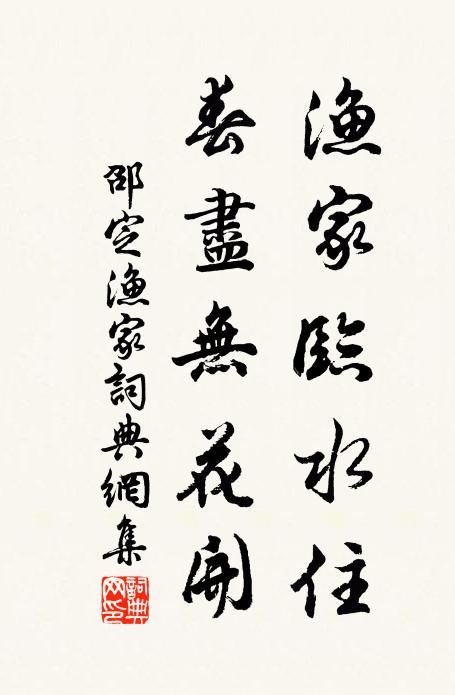 漁家臨水住
春盡無花開
邵定漁家詞典網集
詞典網印